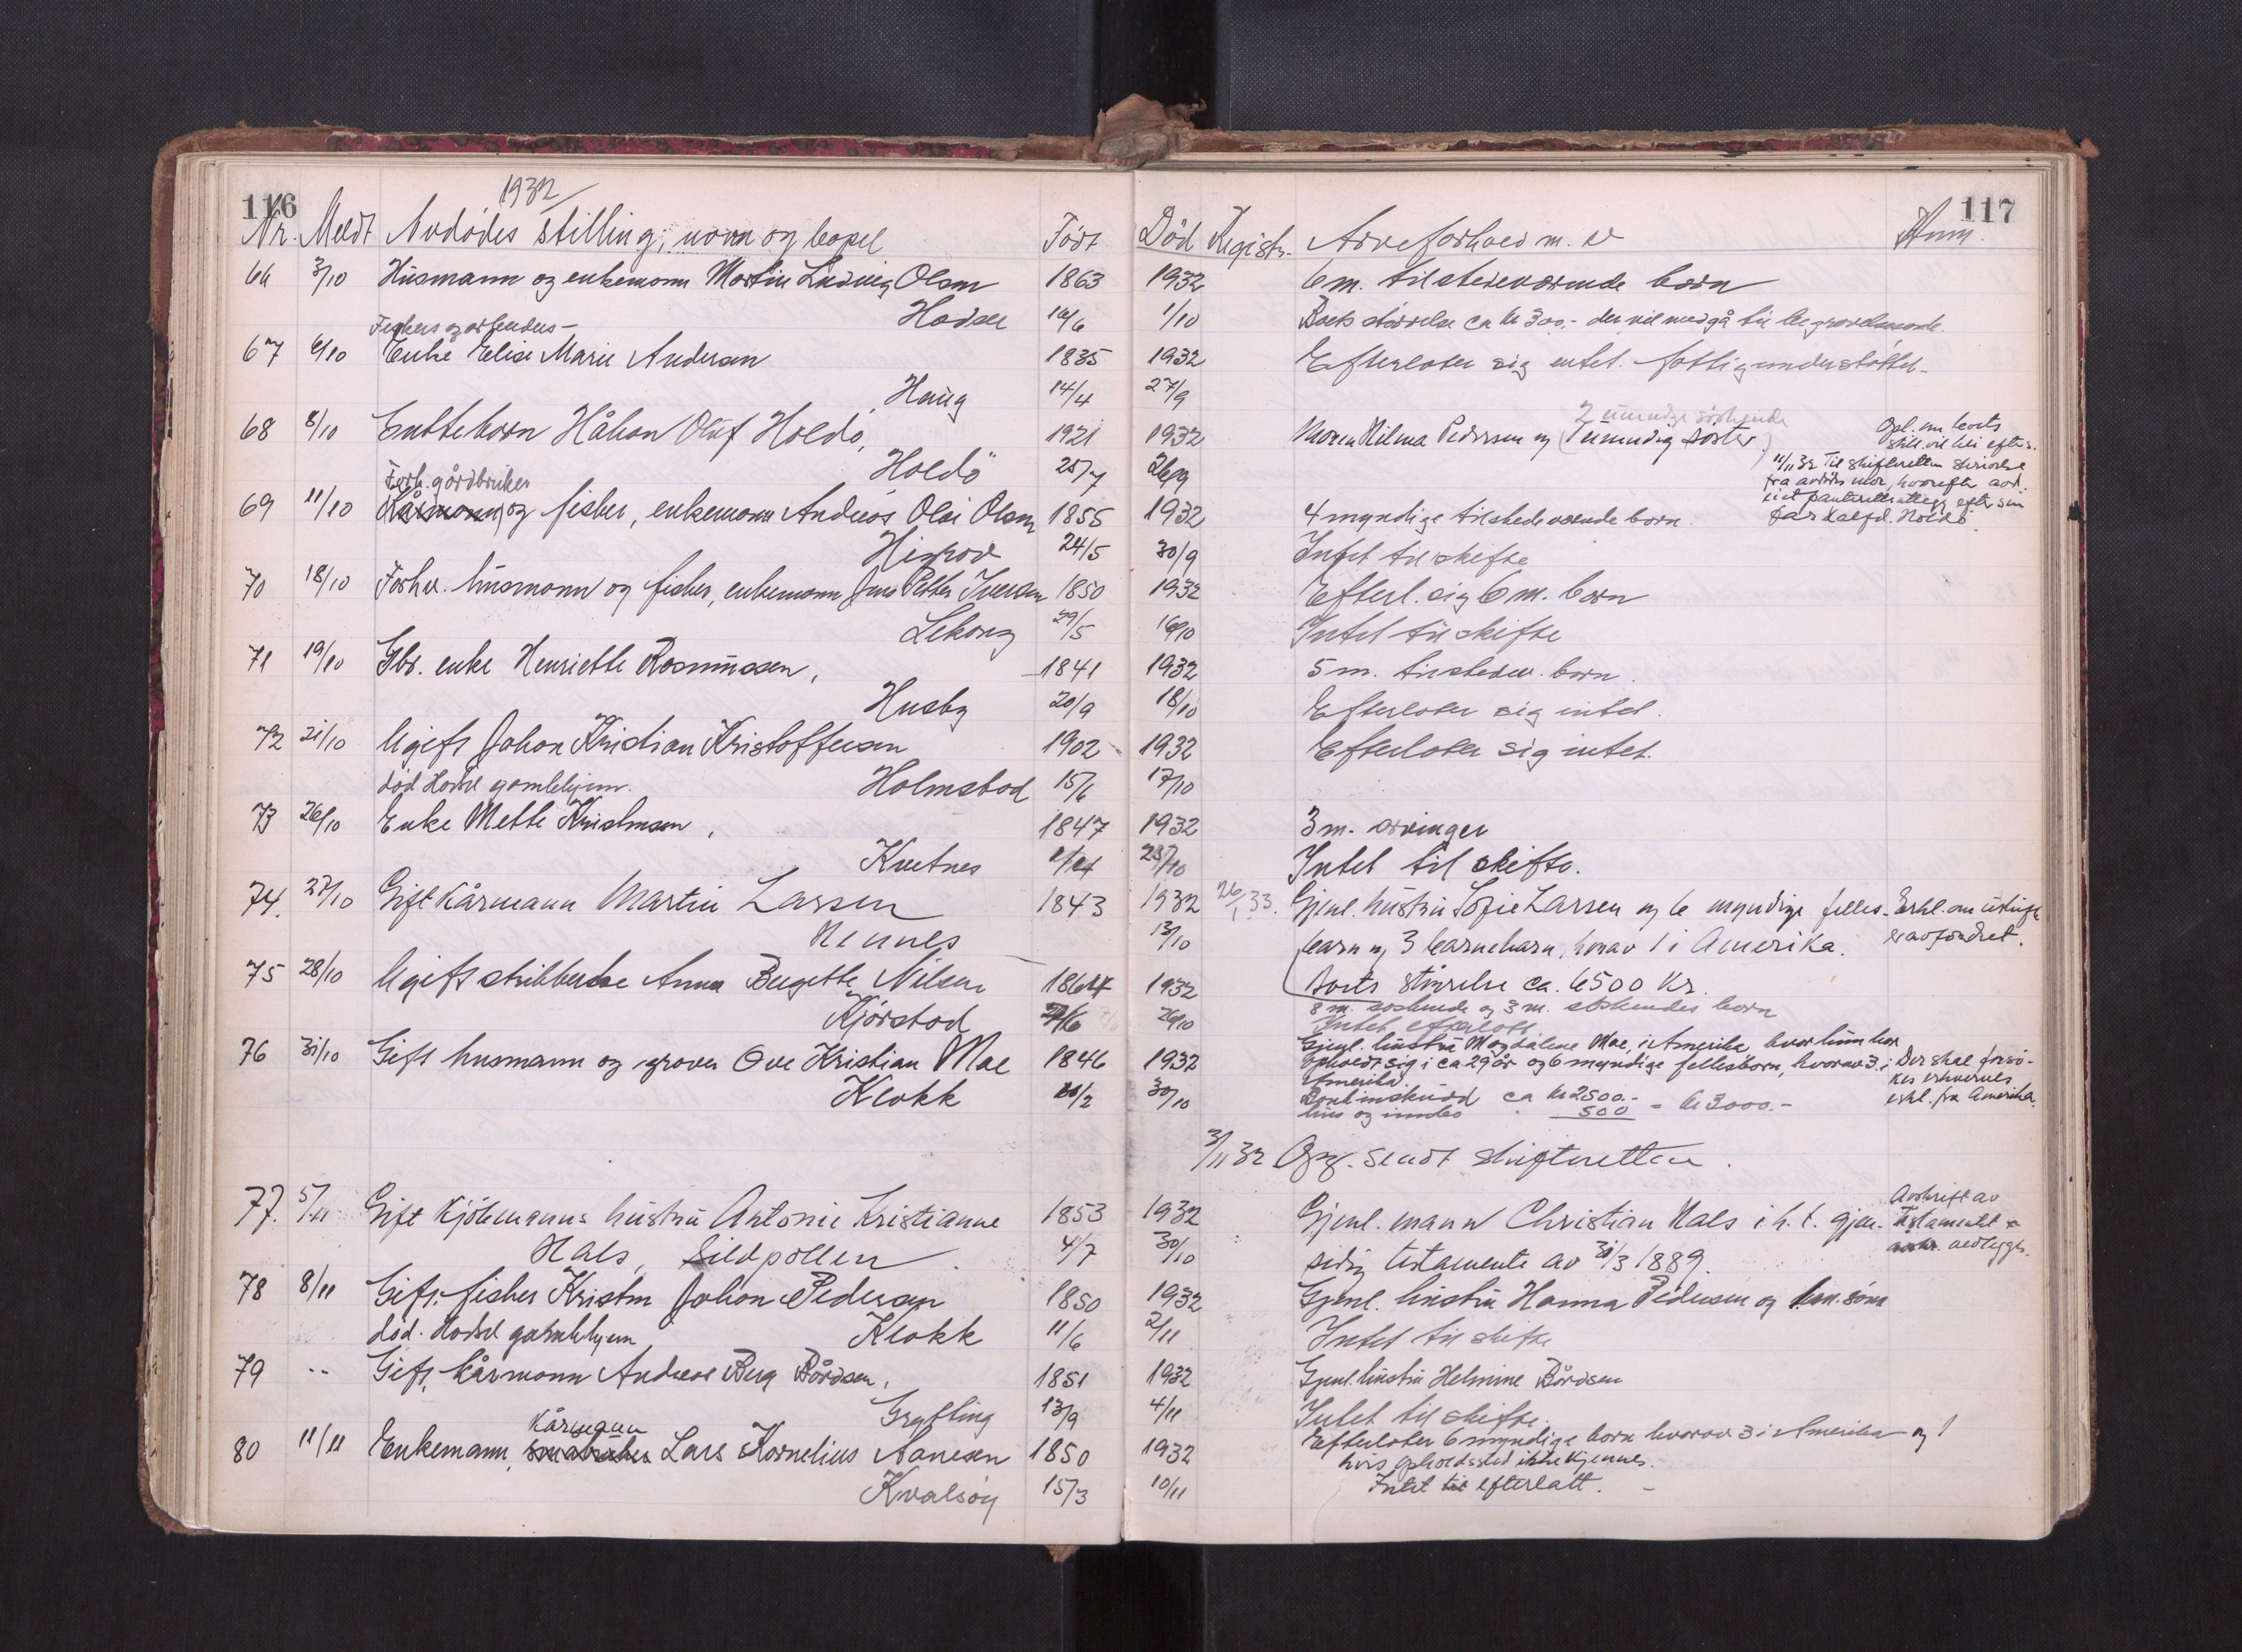 116
1932
Nr. Meldt Avdødes stilling, navn og bopel Født
66 3/10 Husmann og enkemann Martin Ludvig Olsen 1863
Hadsel 16/6
Fiskers og arbeiders-
67 6/10 Enke Elise Marie Andersen 1835
Haug 14/4
68 8/10 Guttebarn Håkon Oluf Holdø, 1921
Holdö 25/7
Forh. gårdbruker
69 11/10 Kårmann og fisker, enkemann Andreas Olai Olsen 1855
24/5
70 18/10 Forhv. husmann og fisker, enkemann Jens Petter Iversen 1850
29/5
71 19/10 Gbr. enke Henriette Rasmussen, 1841
Husby 20/9
72 21/10 Ugift Johan Kristian Kristoffersen 1902
død Hadsel gamlehjem. Holmstad 15/6
73 26/10 Enke Mette Kristensen, 1847
74. 27/10 Gift kårmann Martin Larsen 1843
Rennes
75 28/10 Ugift Anna Bergette Nilsen 1864
Kjørstad
76 31/10 Gift husmann og graver Ove Kristian Moe 1846
Klokk
77. 5/11 Gift kjöbmanns hustru Antonie Kristianne 1853
Hals, Sildpollen. 4/7
78 8/11 Gift, fisker Kristen Johan Pedersen 1850
død. Hadsel gamlehjem Klokk 11/6
79 -- Gift, kårmann Andreas Berg Bårdsen, 1851
Grytting 13/9
kårmann
80 11/11 Enkemann, småbruker Lars Kornelius Aanesen 1850
Kvalsöy 15/3
117
Död Registr. Arveforhold m. v Anm.
1932 6 m. tilstedeværende barn
1/10 Boets størrelse ca kr 300.- der vil medgå til begravelsen
1932 Efterlater sig intet. fattigunderstøttet-
27/9
2 umyndige söskende
1932 Moren Hilma Pedersen og 1 umyndig søster.
26/9
11/11 32 Til skifteretten skrivelse
fra avdødes mor, hvorefter avd.
efter sin
far Holdö.
1932 4 myndige tilstedeværende barn.
30/9 Intet til skifte
1932 Efterl. sig 6 m. barn
16/10 Intet til skifte
1932 5 m. tilstedev. barn.
18/10 Efterlater sig intet.
1932 Efterlater sig intet.
17/10
1932 3 m. arvinger
25/10 Intet til skifte.
1932 26/1 33. Gjenl. hustru Sofie Larsen og 6 myndige felles- Erkl. om uskifte
13/10 barn og 3 barnebarn, hvorav 1 i Amerika. er avfordret.
Boets størrelse ca. 6500 Kr.
1932 8 m. søskende og 3 m. søskendes barn
26/10 Intet efterlatt
Gjenl. hustru Magdalene Moe, i Amerika hvor hun har
1932 opholdt sig i ca 29 år og 6 myndige fellesbarn, hvorav 3 i Der skal forsö-
Amerika. kes erhverves
30/10 Bankinnskudd ca kr 2500.- erkl. fra Amerika
hus og innbo 500 = kr 3000.-
3/11 32 Opg. sendt skifteretten.
Avskrift av
1932 Gjenl. mann Christian Hals i. h. t. gjen- Testamentet
30/10 sidig testamente av 31/3 1889. vedlegges.
1932 Gjenl. hustru Hanna Pedersen og
2/11 Intet til skifte
1932 Gjenl. hustru Helmine Bårdsen
4/11 Intet til skifte.
1932 Efterlater 6 myndige barn hvorav 3 i Amerika og 1
hvis opholdssted ikke kjennes.
10/11 Intet til efterlatt. -